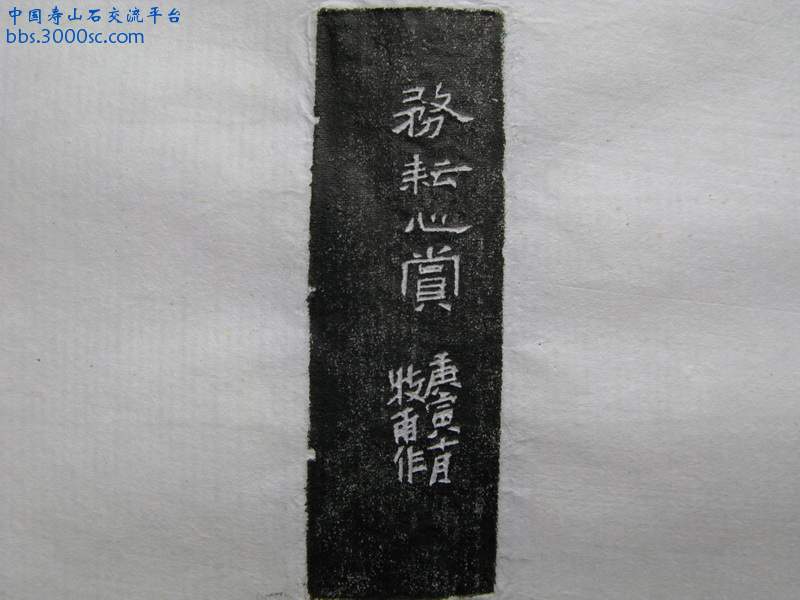 中国寿山石交流平台
bbs.3000sc.com
務耘心賞
庚寅十月
牧甫作